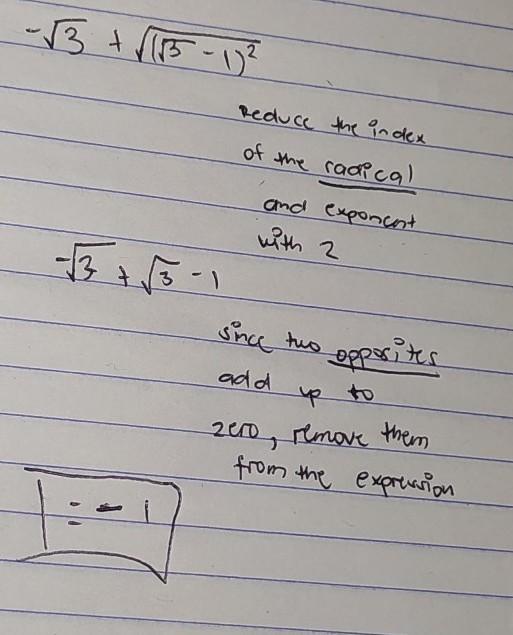 -√3 + √(√3 - 1)²
Reduce the index
of the radical
and exponent
with 2
-√3 + √3 - 1
since two opposites
add up to
zero, remove them
from the expression
= - 1